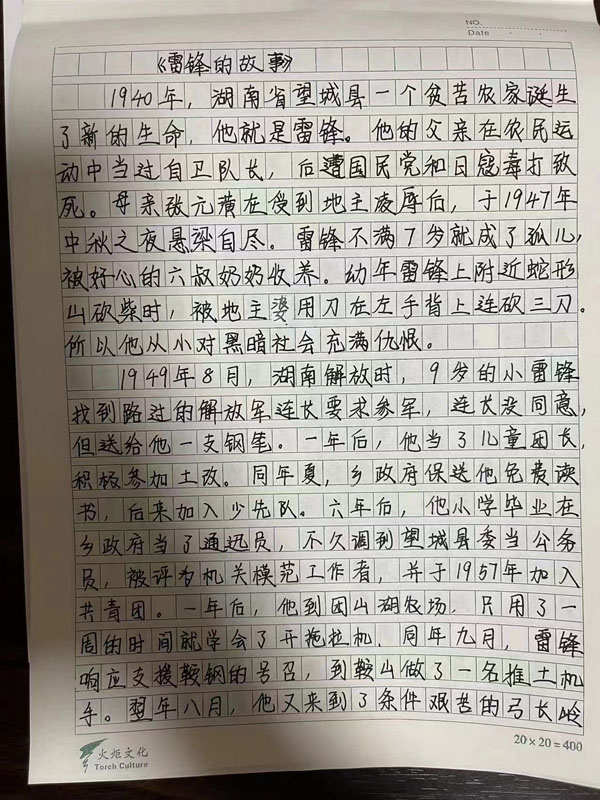 NO.
Date
《雷锋的故事》
1940年，湖南省望城县一个贫苦农家诞生
了新的生命，他就是雷锋。他的父亲在农民运
动中当过自卫队长，后遭国民党和日寇毒打致
死。母亲张元潢在受到地主凌辱后，于1947年
中秋之夜悬梁自尽。雷锋不满7岁就成了孤儿，
被好心的六叔奶奶收养。幼年雷锋上附近蛇形
山砍柴时，被地主婆用刀在左手背上连砍三刀。
所以他从小对黑暗社会充满仇恨。
1949年8月，湖南解放时，9岁的小雷锋
找到路过的解放军连长要求参军，连长没同意，
但送给他一支钢笔。一年后，他当了儿童团长，
积极参加土改。同年夏，乡政府保送他免费读
书，后来加入少先队。六年后，他小学毕业在
乡政府当了通远员，不久调到望城县委当公务
员，被评为机关模范工作者，并于1957年加入
共青团。一年后，他到团山湖农场，只用了一
周的时间就学会了开拖拉机，同年九月，雷锋
响应支援鞍钢的号召，到鞍山做了一名推土机
手。翌年八月，他又来到了条件艰苦的弓长岭
火炬文化
Torch Culture
20×20=400